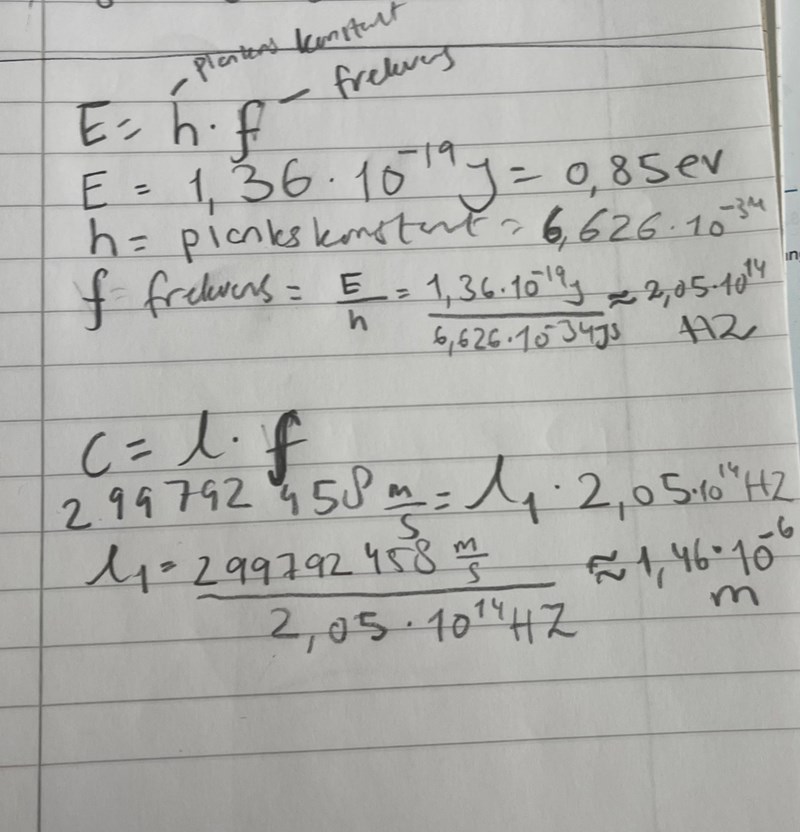 plankens konstant
frekvens
E = h · f
E = 1,36 · 10⁻¹⁹ J = 0,85 ev
h = planks konstant = 6,626 · 10⁻³⁴
f = frekvens = E/h = 1,36 · 10⁻¹⁹ J / 6,626 · 10⁻³⁴ Js ≈ 2,05 · 10¹⁴ HZ
C = λ · f
299792 458 m/s = λ₁ · 2,05 · 10¹⁴ HZ
λ₁ = 299792 458 m/s / 2,05 · 10¹⁴ HZ ≈ 1,46 · 10⁻⁶ m
in